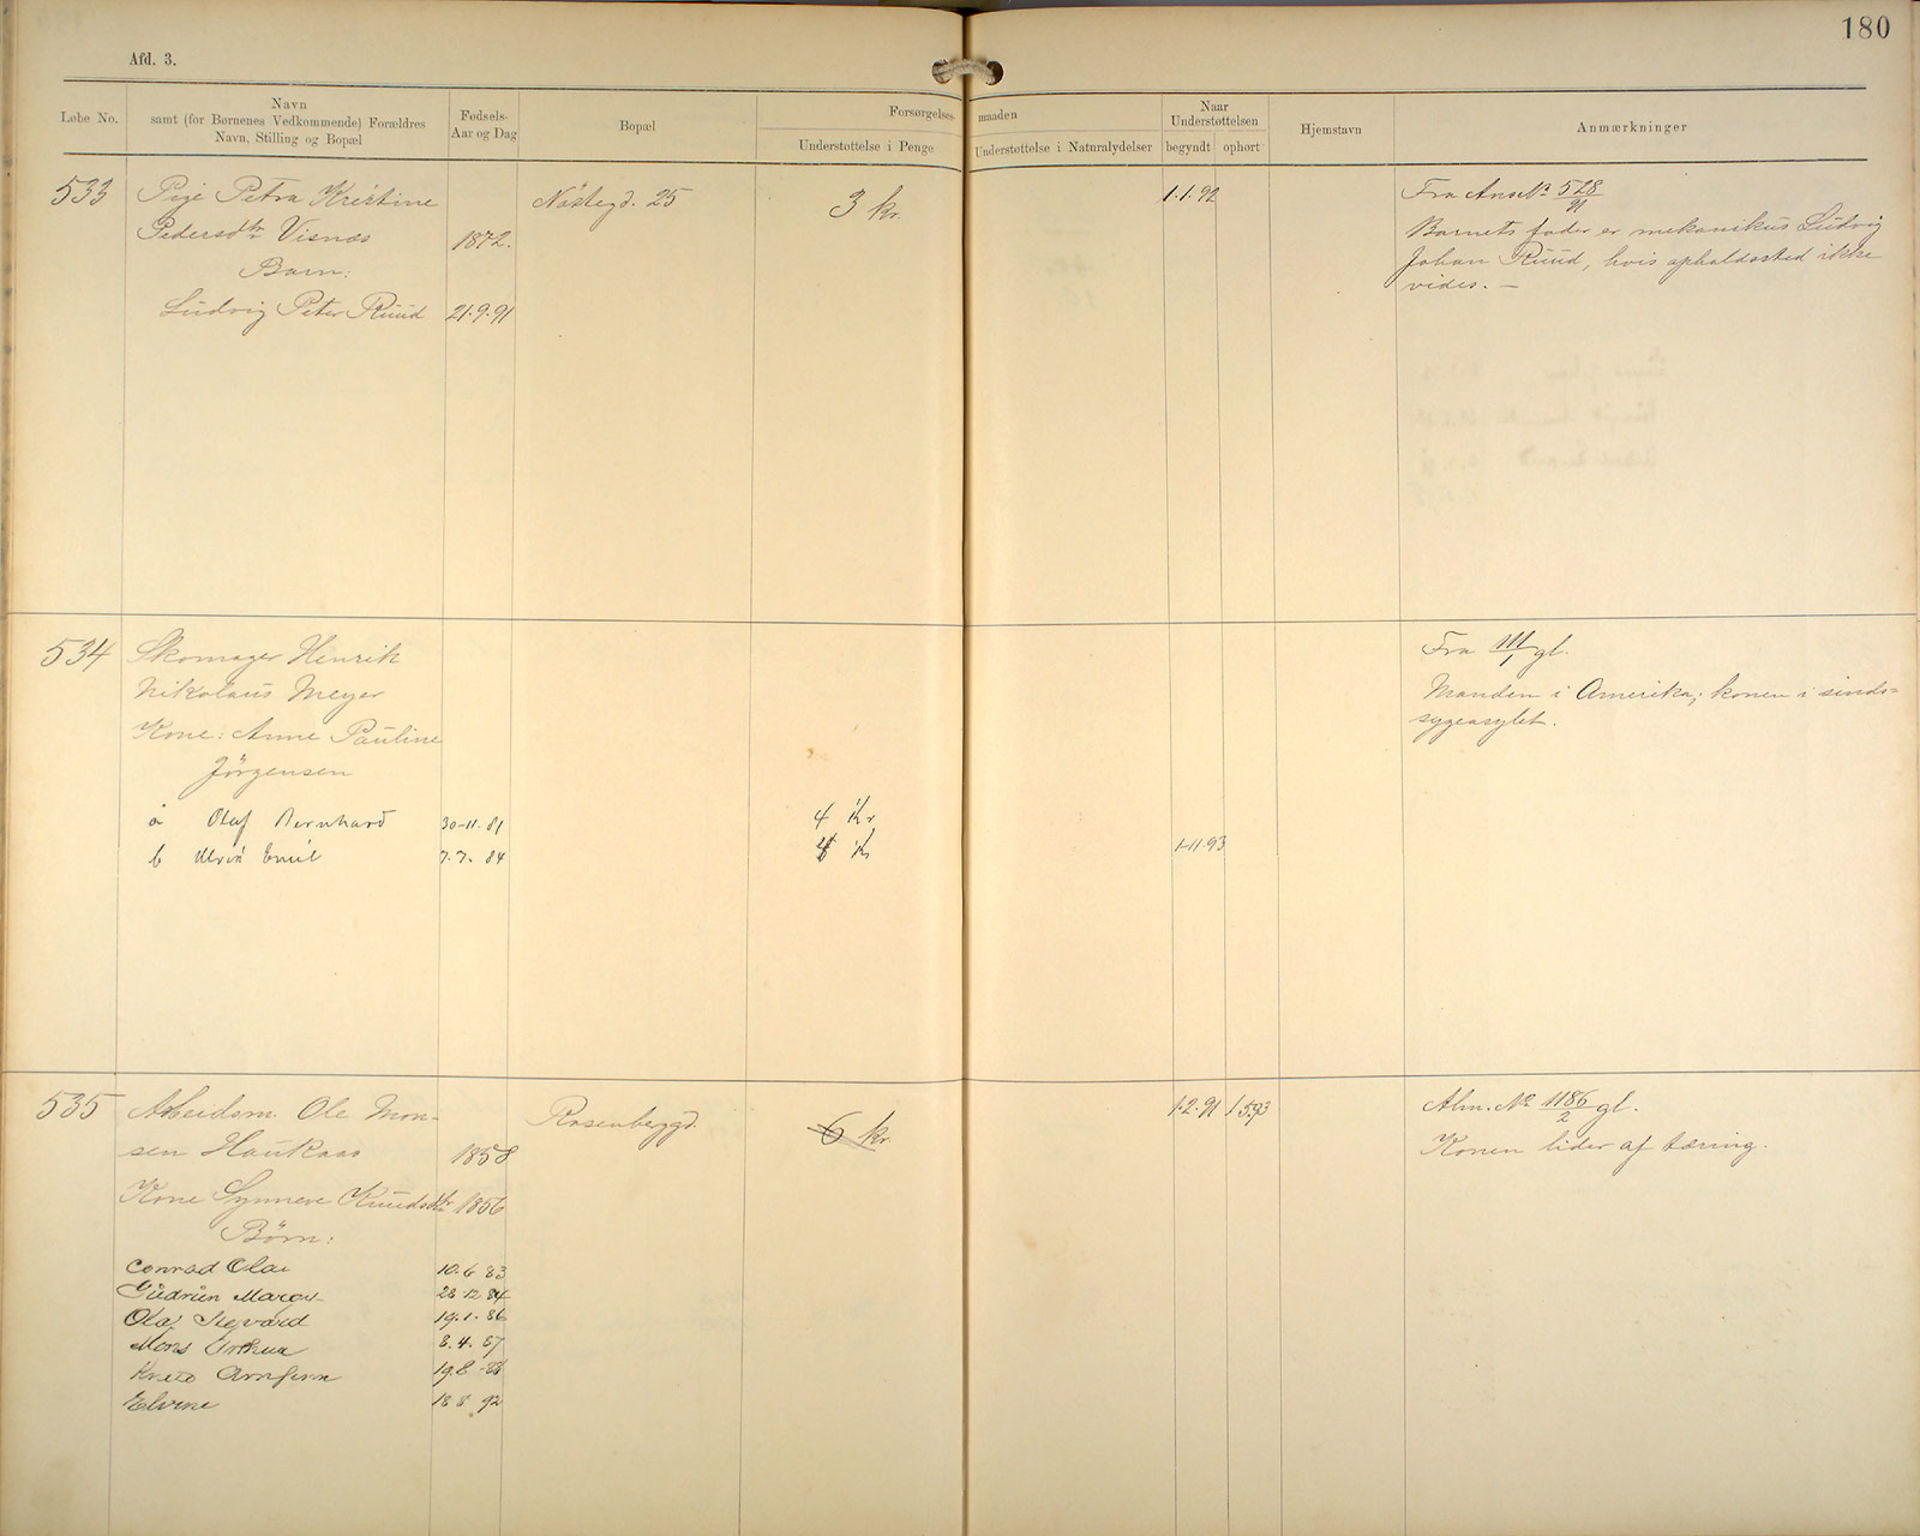 180
Afd. 3.
Løbe No.
Navn
samt (for Børnenes Vedkommende) Forældres
Navn, Stilling og Bopæl
Fødsels-
Aar og Dag
Bopæl
Forsørgelses-
maaden
Understøttelse i Penge
Understøttelse i Naturalydelser
Naar
Understøttelsen
begyndt
ophørt
Hjemstavn
Anmærkninger
533
Pige Petra Kristine
Pedersdtr Visnæs
1872.
Barn:
Ludvig Peter Ruud
21.9.91
Nöstegd. 25
3 kr.
1.1.92
Fra No 528/91
Barnets fader er mekanikus Ludvig
Johan Ruud, hvis opholdssted ikke
vides. —
534
Skomager Henrik
Nikolaus Meyer
Kone: Anne Pauline
Jörgensen
a Olaf Bernhard
30-11-81
4 Kr
b Emil
7.7. 84
Kr
1-11-93
Fra 111/1 gl.
Manden i Amerika; konen i sinds=
sygeasylet.
535
Arbeidsm. Ole Mon-
sen Haukaas
1858
Kone Synneve Knudsdtr 1856
Börn:
Conrad Olai
10.6 83
Gudrun
28 12 84
Ola
19.1.86
Mons Arthur
8.4.87
Knud
19.8-88
Elvine
18 8 92
Rosenberggd.
6 kr.
1.2.91
1 5.93
Alm. No 1186/2 gl.
Konen lider af tæring.